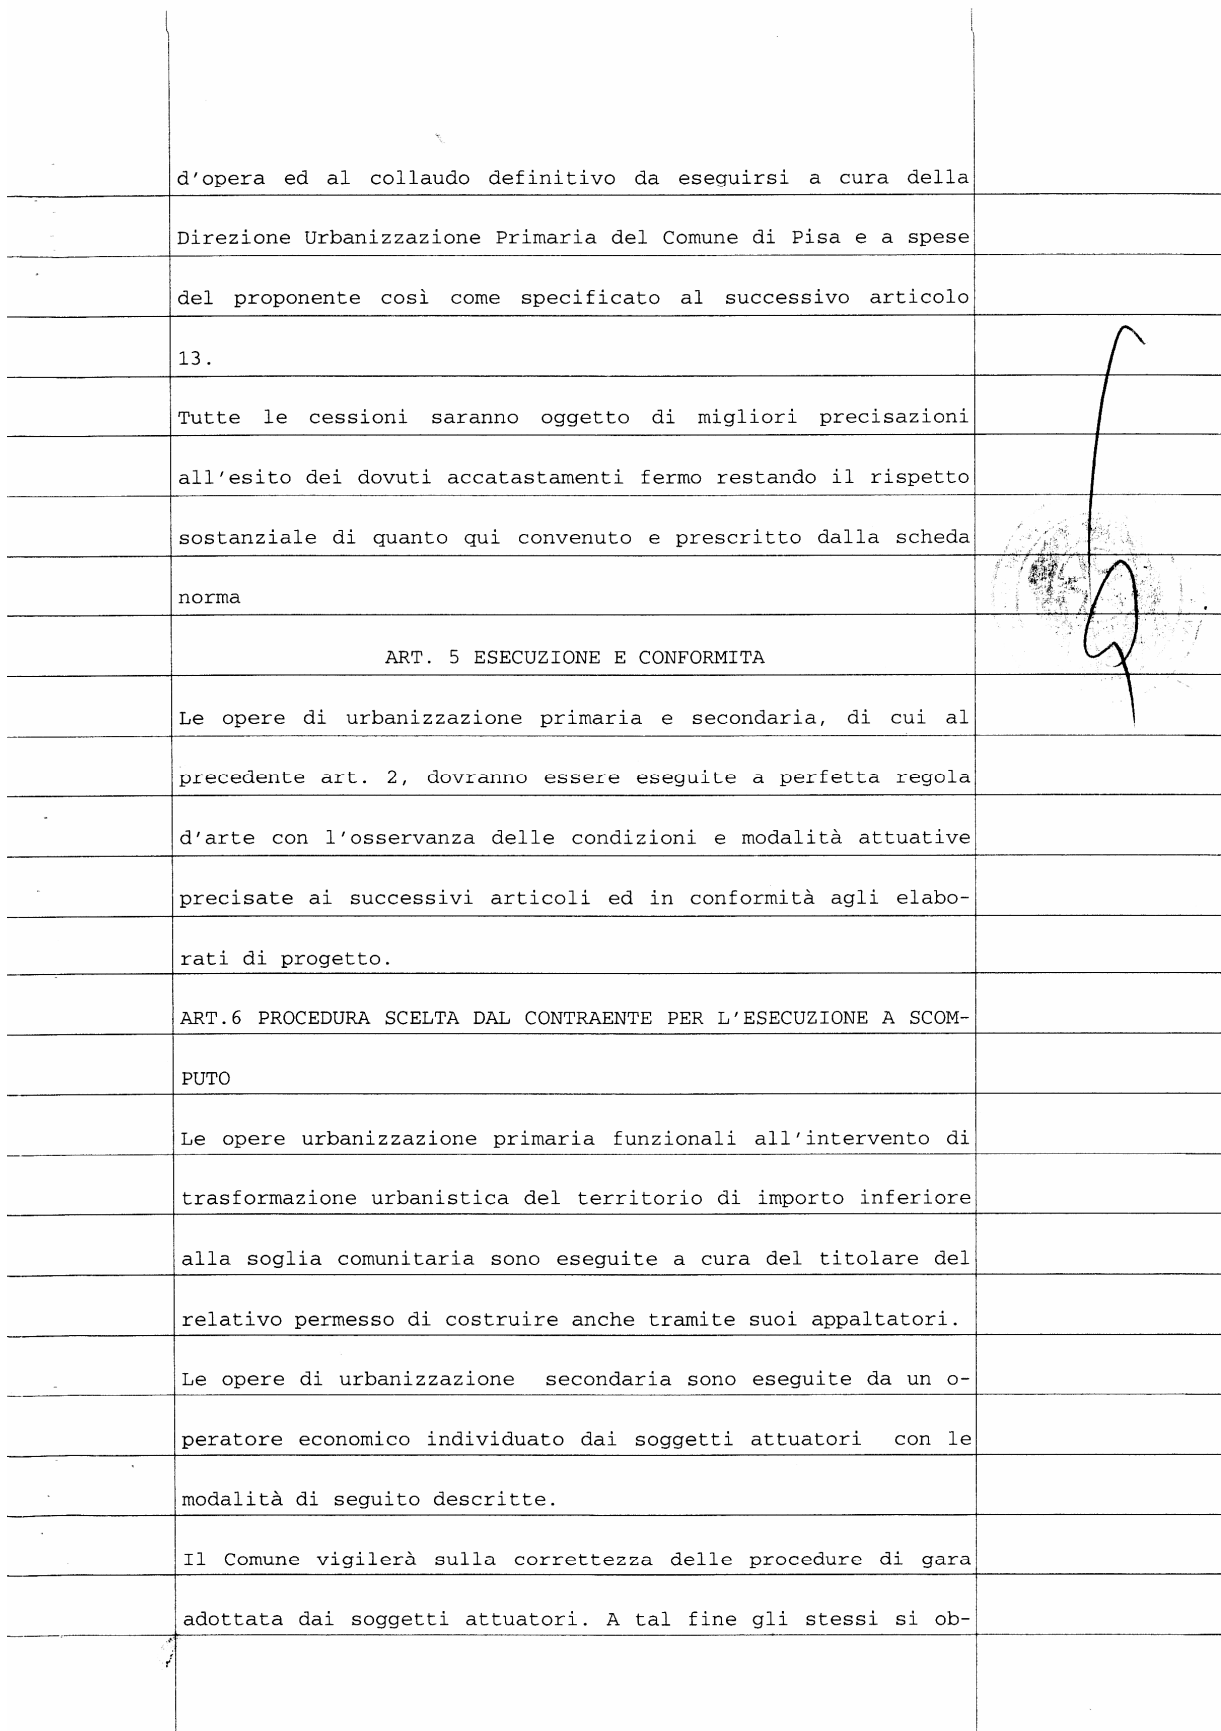 d'opera ed al collaudo definitivo da eseguirsi a cura della
Direzione Urbanizzazione Primaria del Comune di Pisa e a spese
del proponente così come specificato al successivo articolo
13.
Tutte le cessioni saranno oggetto di migliori precisazioni
all'esito dei dovuti accatastamenti fermo restando il rispetto
sostanziale di quanto qui convenuto e prescritto dalla scheda
norma
ART. 5 ESECUZIONE E CONFORMITA
Le opere di urbanizzazione primaria e secondaria, di cui al
precedente art. 2, dovranno essere eseguite a perfetta regola
d'arte con l'osservanza delle condizioni e modalità attuative
precisate ai successivi articoli ed in conformità agli elabo-
rati di progetto.
ART.6 PROCEDURA SCELTA DAL CONTRAENTE PER L'ESECUZIONE A SCOM-
PUTO
Le opere urbanizzazione primaria funzionali all'intervento di
trasformazione urbanistica del territorio di importo inferiore
alla soglia comunitaria sono eseguite a cura del titolare del
relativo permesso di costruire anche tramite suoi appaltatori.
Le opere di urbanizzazione secondaria sono eseguite da un o-
peratore economico individuato dai soggetti attuatori con le
modalità di seguito descritte.
Il Comune vigilerà sulla correttezza delle procedure di gara
adottata dai soggetti attuatori. A tal fine gli stessi si ob-